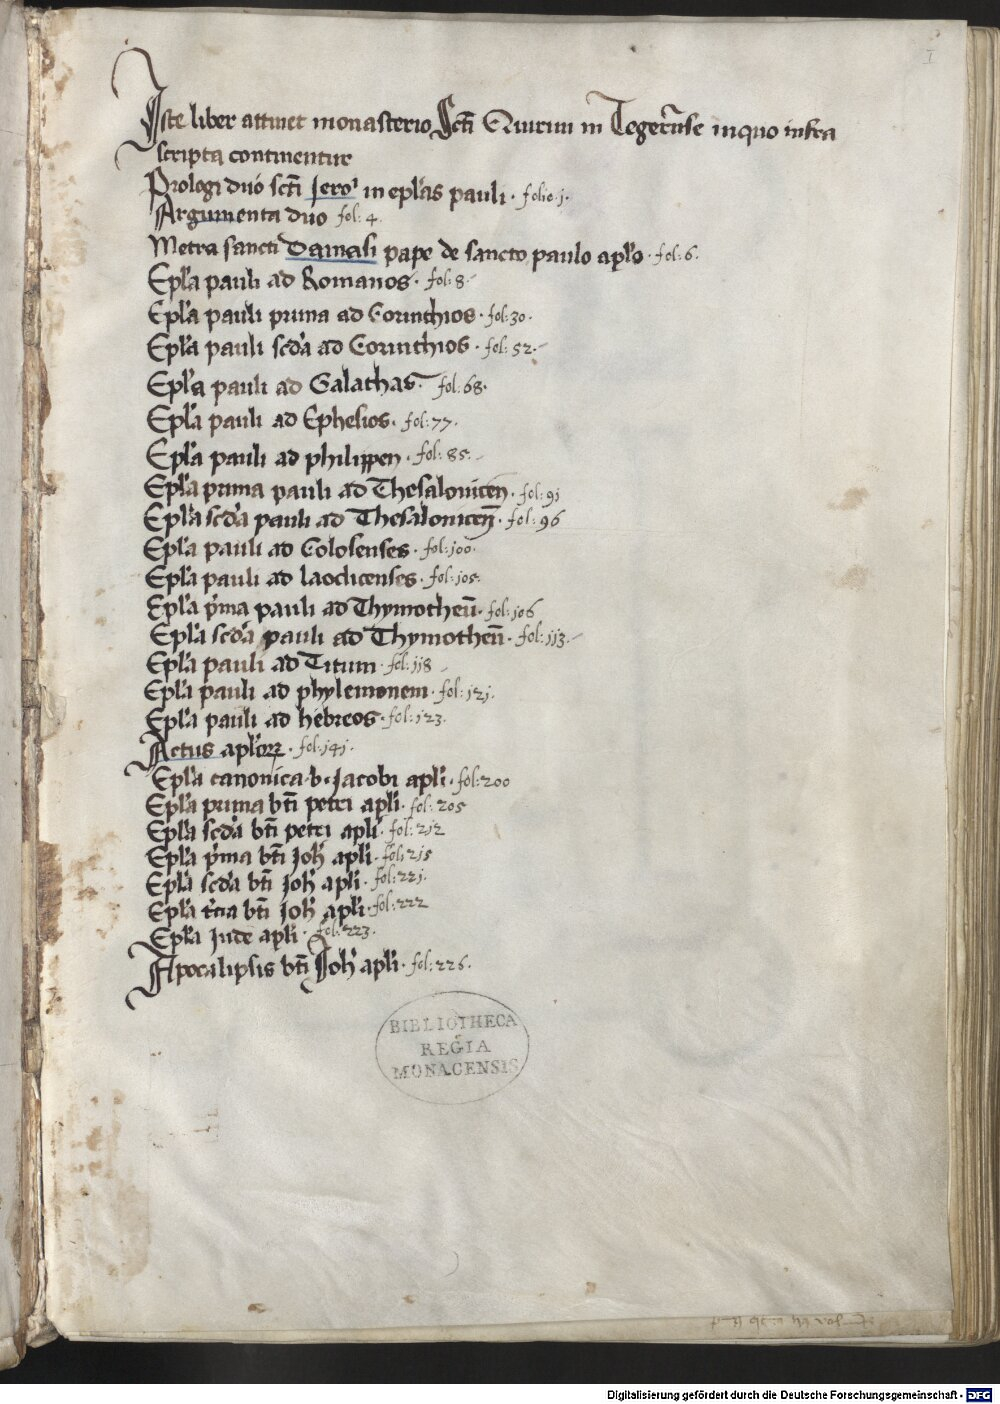 I
Iste liber attinet monasterio Scti Quirini in Tegerñse inquo infra
scripta continentur
Prologi duo scti Jero' in eplas pauli · folio · j ·
Argumenta duo fol: 4
Metra sancti Damasi pape de sancto paulo aplo · fol: 6 ·
Epla pauli ad Romanos · fol: 8 ·
Epla pauli prima ad Corinthios · fol: 30 ·
Epla pauli scda ad Corinthios · fol: 52 ·
Epla pauli ad Galathas · fol: 68 ·
Epla pauli ad Ephesios · fol: 77 ·
Epla pauli ad philippen · fol: 85 ·
Epla prima pauli ad Thesalonicen · fol: 91
Epla scda pauli ad Thesalonicen̄ · fol: 96
Epla pauli ad Colosenses · fol: 100 ·
Epla pauli ad laodicenses · fol: 105 ·
Epla p̄ma pauli ad Thymotheū · fol: 106
Epla scda pauli ad Thymotheū · fol: 113 ·
Epla pauli ad Titum · fol: 118
Epla pauli ad phylemonem · fol: 121 ·
Epla pauli ad hebreos · fol: 123 ·
Actus aplorꝝ · fol: 141 ·
Epla canonica · b · Jacobi apli · fol: 200
Epla prima bti petri apli · fol: 205
Epla scda bti petri apli · fol: 212
Epla p̄ma bti Joh apli · fol: 215
Epla scda bti Joh apli · fol: 221 ·
Epla t̄cia bti Joh apli · fol: 222
Epla Jude apli · fol: 223 ·
Apocalipsis bti Joh apli · fol: 226 ·
BIBLIOTHECA
REGIA
MONACENSIS
Digitalisierung gefördert durch die Deutsche Forschungsgemeinschaft - DFG